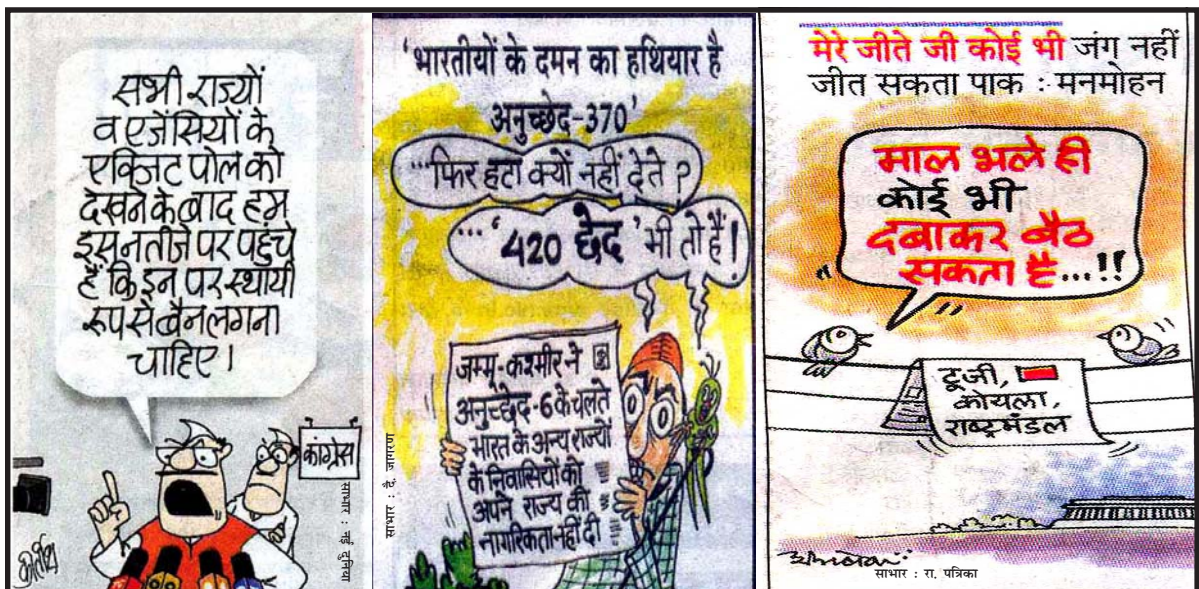 सभी राज्यों
व एजेंसियों के
एक्जिट पोल को
देखने के बाद हम
इस नतीजे पर पहुंचे
हैं कि इन पर स्थायी
रूप से बैन लगना
चाहिए।
कांग्रेस
साभार : नई दुनिया
'भारतीयों के दमन का हथियार है
अनुच्छेद-370'
...फिर हटा क्यों नहीं देते ?
... '420 छेद' भी तो हैं !
जम्मू-कश्मीर ने
अनुच्छेद-6 के चलते
भारत के अन्य राज्यों
के निवासियों को
अपने राज्य की
नागरिकता नहीं दी
साभार : दै. जागरण
मेरे जीते जी कोई भी जंग नहीं
जीत सकता पाक : मनमोहन
माल भले ही
कोई भी
दबाकर बैठ
सकता है...!!
टूजी,
कोयला,
राष्ट्रमंडल
साभार : रा. पत्रिका